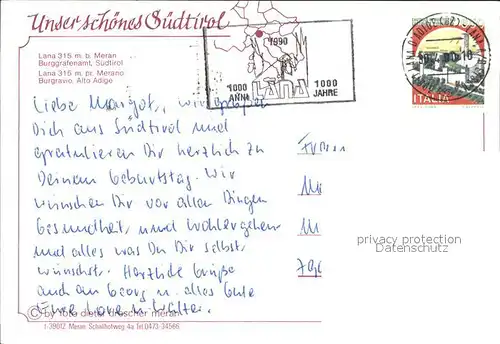 Unser schönes Südtirol
Lana 315 m. b. Meran
Burggrafenamt, Südtirol
Lana 315 m. pr. Merano
Burgravio, Alto Adige
1990
1000 ANNI LANA 1000 JAHRE
ITALIA
Liebe Margot, wir grüßen
Dich aus Südtirol und
gratulieren Dir herzlich zu
Deinem Geburtstag. Wir
wünschen Dir vor allen Dingen
Gesundheit, und Wohlergehen
und alles was Du Dir selbst
wünschst. Herzliche Grüße
auch an Georg u. alles Gute
Eure Lore u. Walter.
privacy protection
Datenschutz
© by foto dieter drescher meran
I-39012 Meran Schallhofweg 4a Tel.0473-34566